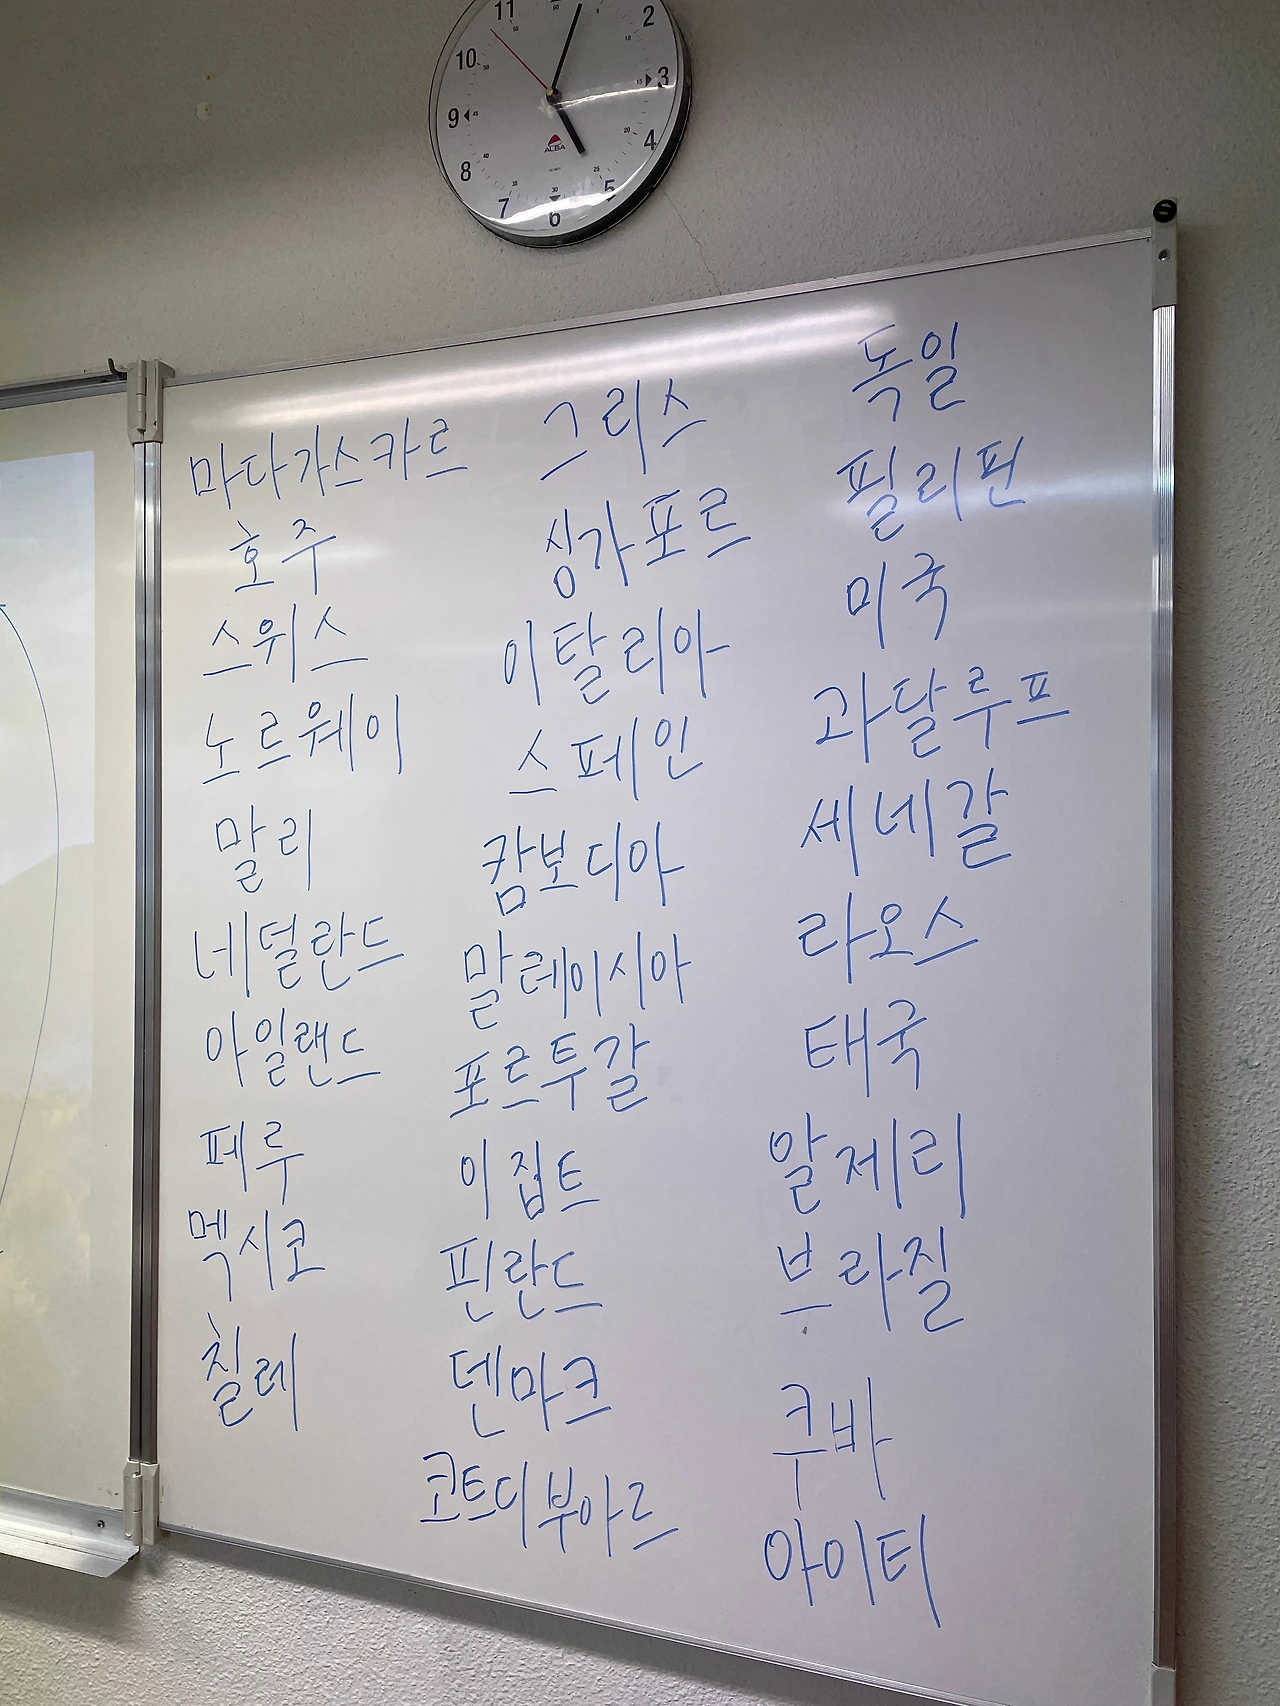 11
2
10
3
9
4
8
ALBA
5
7
6
마다가스카르
호주
스위스
노르웨이
말리
네덜란드
아일랜드
페루
멕시코
칠레
그리스
싱가포르
이탈리아
스페인
캄보디아
말레이시아
포르투갈
이집트
핀란드
덴마크
코트디부아르
독일
필리핀
미국
과달루프
세네갈
라오스
태국
알제리
브라질
쿠바
아이티